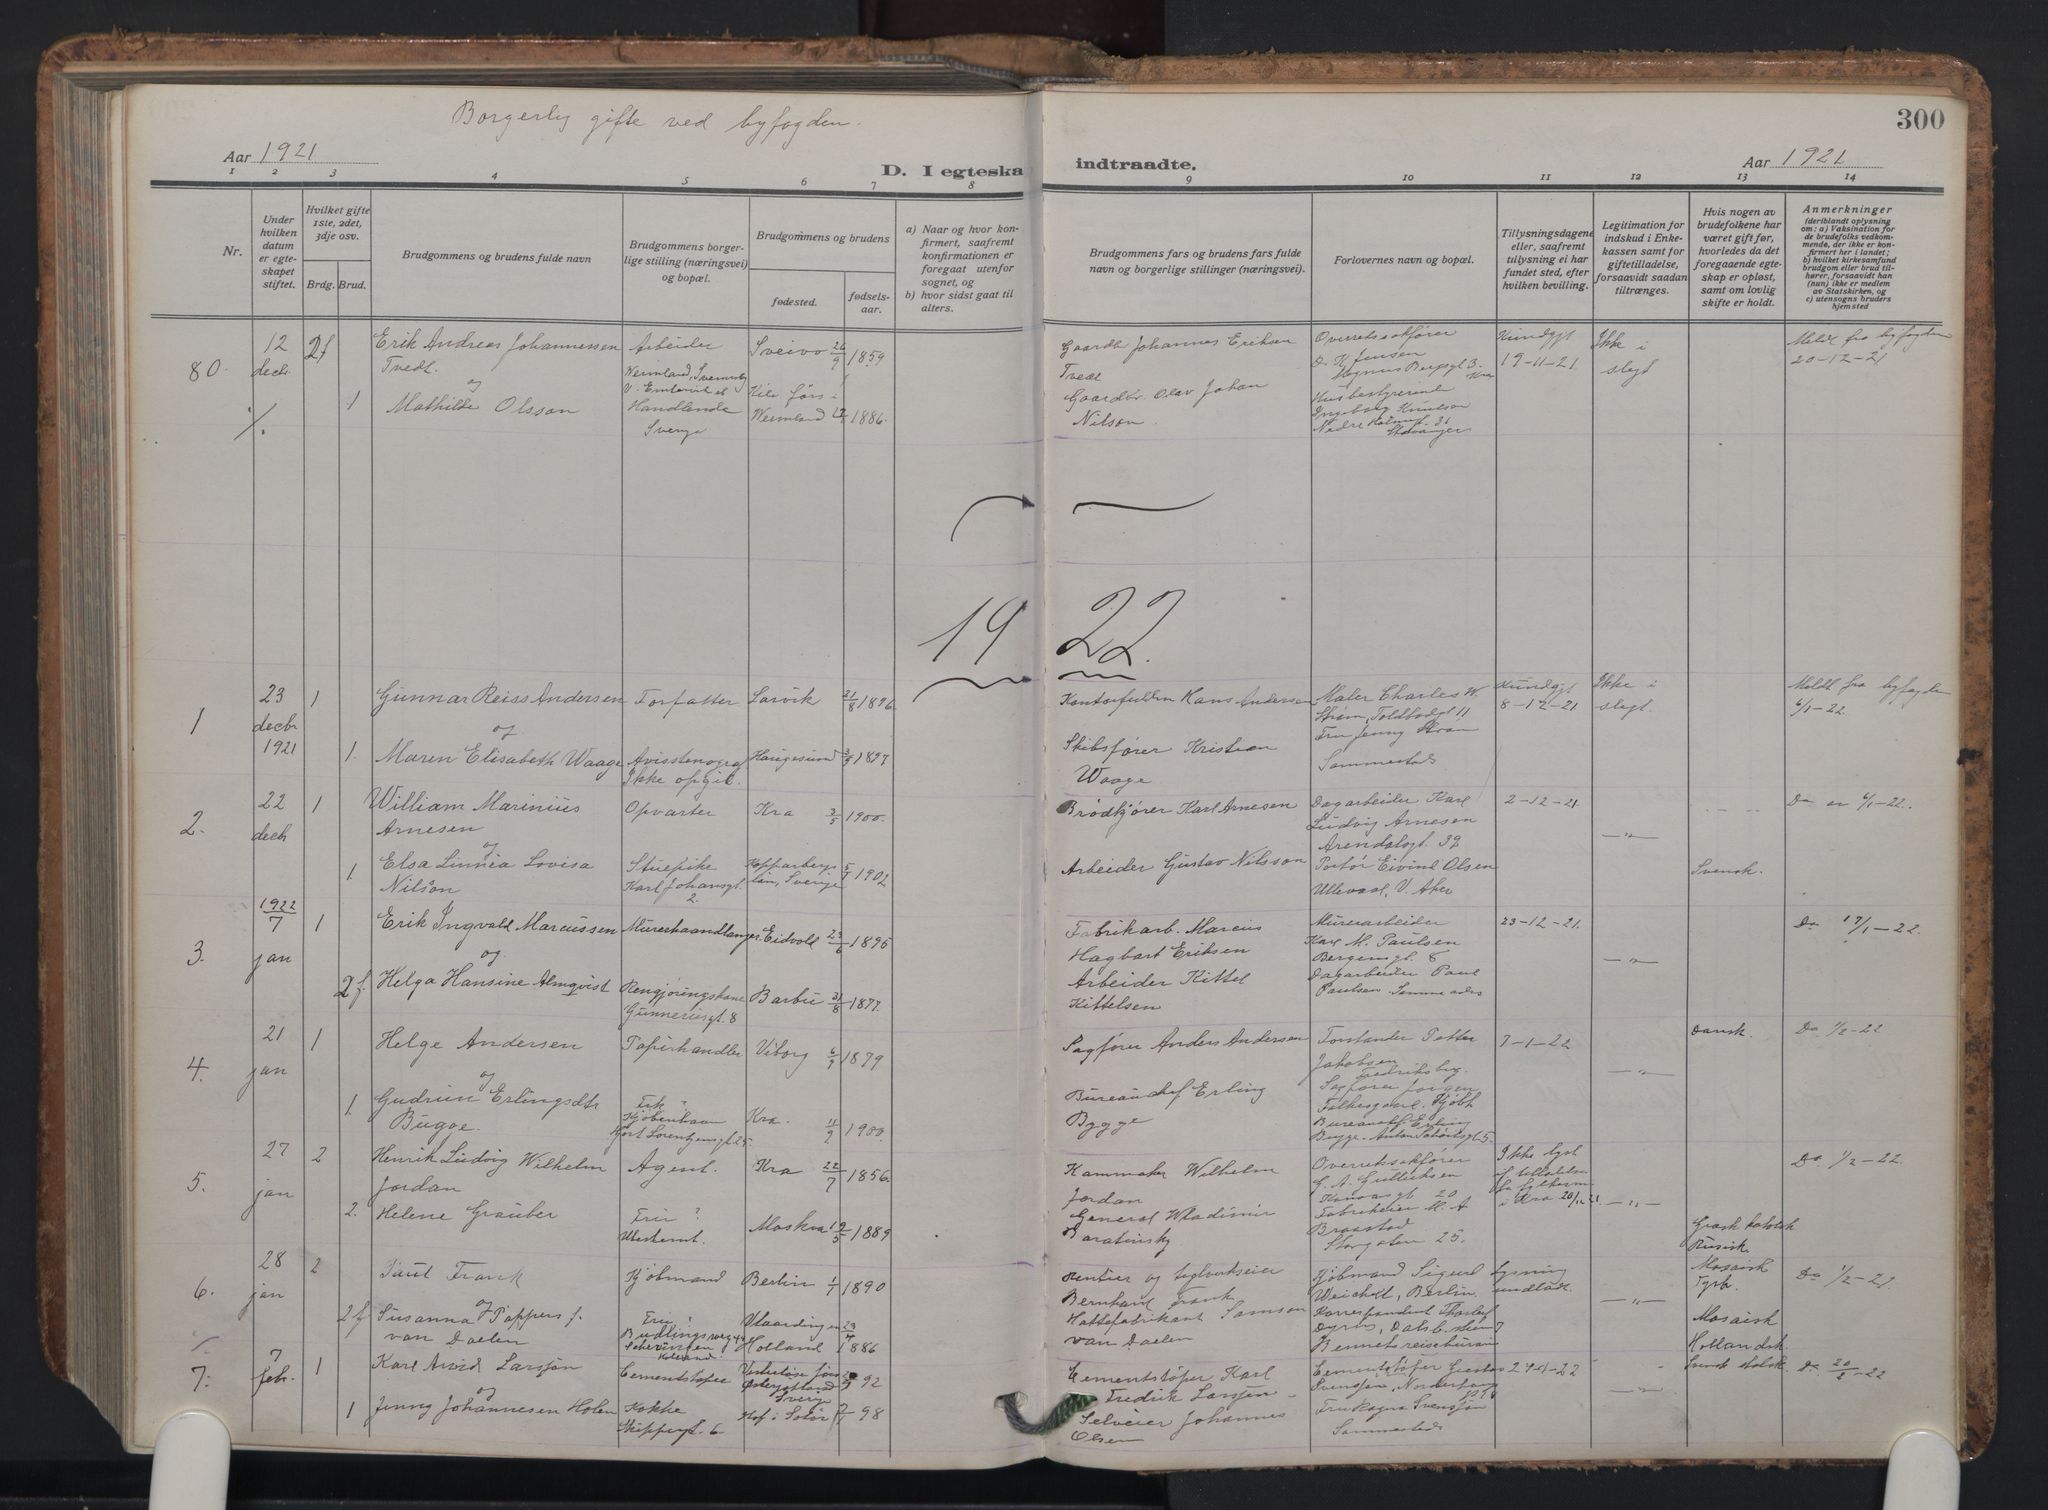 Borgerlig gifte ved byfogden.
300
Aar 1921
D. I egteska
indtraadte.
Aar 1921
1 2 3 4 5 6 7 8 9 10 11 12 13 14
Nr.
Under hvilken datum er egteskapet stiftet.
Hvilket gifte 1ste, 2det, 3dje osv.
Brdg. Brud.
Brudgommens og brudens fulde navn
Brudgommens borgerlige stilling (næringsvei) og bopæl.
Brudgommens og brudens
fødested.
fødselsaar.
a) Naar og hvor konfirmert, saafremt konfirmationen er foregaat utenfor sognet, og
b) hvor sidst gaat til alters.
Brudgommens fars og brudens fars fulde navn og borgerlige stillinger (næringsvei).
Forlovernes navn og bopæl.
Tillysningsdagene eller, saafremt tillysning ei har fundet sted, efter hvilken bevilling.
Legitimation for indskud i Enkekassen samt for giftetilladelse, forsaavidt saadan tiltrænges.
Hvis nogen av brudefolkene har været gift før, hvorledes da det foregaaende egteskap er opløst, samt om lovlig skifte er holdt.
Anmerkninger
(deriblandt oplysning om: a) Vaksination for de brudefolks vedkommende, der ikke er konfirmert her i landet; b) hvilket kirkesamfund brudgom eller brud tilhører, forsaavidt han (hun) ikke er medlem av Statskirken, og c) utensogns bruders hjemsted
80. 12 decbr 2f Erik Andreas Johannessen Tvedt. Arbeider Sveivo 26/9 1859
Gaardbr Johannes Eriksen Tvedt Overretssakfører Kundgjt 19-11-21. Ikke i slegt Meldt fra byfogden 20-12-21
og
1 Mathilde Olsson Handlende Sverige Wermland 1886.
Gaardbr. Olav Johan Nilson Husbestyrerinde Ingeborg Knudson Nedre Stavanger
19 22.
1 23 decbr 1921 1 Gunnar Reiss Andersen Forfatter Larvik 21/8 1896.
Kontorfuldm Hans Andersen Maler Charles W. Strøm, Toldbodgt 11 Kundgjt 8-12-21. Ikke i slegt. Meldt fra byfogden 6/1-22.
og
1. Maren Elisabeth Waage Avisstenograf Ikke opgit. Haugesund 3/5 1897
Skibsfører Kristian Waage. Fru Jenny Strøm Sammesteds
2. 22 decb 1 William Marinius Arnesen Opvarter Kra 3/5 1900.
Brødkjører Karl Arnesen Dagarbeider Karl Ludvig Arnesen Arendalsgt. 39 2-12-21. -"- Do 6/1-22.
og
1. Elsa Linnéa Lovisa Nilson Stuepike Karl Johansgt. 2. Kopparbergs län, Sverige 1902
Arbeider Gustav Nilsson Portør Eivind Olsen Ullevaal, V. Aker Svensk.
3. 1922 7 jan 1 Erik Ingvald Marcussen Murerhaandlanger Eidvold 23/6 1895
Fabrikarb. Marcus Hagbart Eriksen Murerarbeider Karl M. Paulsen Bergensgt. 8 23-12-21. -"- Do 17/1-22.
og
2f. Helga Hansine Almqvist Rengjøringskone Gunnerusgt. 8 Barbu 31/8 1877.
Arbeider Kittel Kittelsen Dagarbeider Paul Paulsen. Samme adrs
4. 21 jan 1 Helge Andersen Papirhandler Viborg 6/9 1879
Sagfører Anders Andersen Forstander Petter Jakobsen Fredriksberg. 7-1-22. -"- Dansk. Do 1/2-22
og
1. Gudrun Erlingsdtr Bugge. Frk ? Kjøbenhavn Kort Lorentzensgt 25. Kra. 11/9 1900.
Bureauchef Erling Bygge Sagfører Jørgen Falkesgaard. Kjøbh Bureauchef Erling Bugge. Anton Schøthsgt. 5.
5. 27 jan 2 Henrik Ludvig Wilhelm Jordan Agent. Kra 22/7 1856.
Kammaker Wilhelm Jordan Overretssakfører G. A. Gulliksen 20 Ikke lyst i Kra 20/12 21 -"- Do 1/2-22.
2. Helene Grauber Frue ? Moskva 1889
General Wladimir Baratinsky Fabrikeier M. A. Braastad Storgaten 25. Græsk katolsk Russisk.
6. 28 jan 2 Paul Frank Kjøbmand Berlin 1/7 1890
Rentier og teglverkseier Bernhard Frank Kjøbmand Sigurd Weicholt, Berlin. Lysning undlatt. -"- Mosaisk Tysk. Do 1/2-21
og
2f Susanna Pappers f. van Daelen Frue ? Scheveningen Holland. Vlaardingen Holland 23/7 1886
Hattefabrikant Samson van Daelen Korrespondent Bennets reisebureau Mosaisk Hollandsk.
7. 7 febr. 1 Karl Arvid Larsson Cementstøper Sverige 92
Cementstøper Karl Fredrik Larsson Cementstøper Gustav Svensson, 24-1-22 -"- Svensk statsk. Do 20/2-22
og
1 Jenny Johannesen Holen Kokke Skippergt. 6 Hof i Solør 98
Selveier Johannes Olsen Fru Ragna Svensson Sammesteds